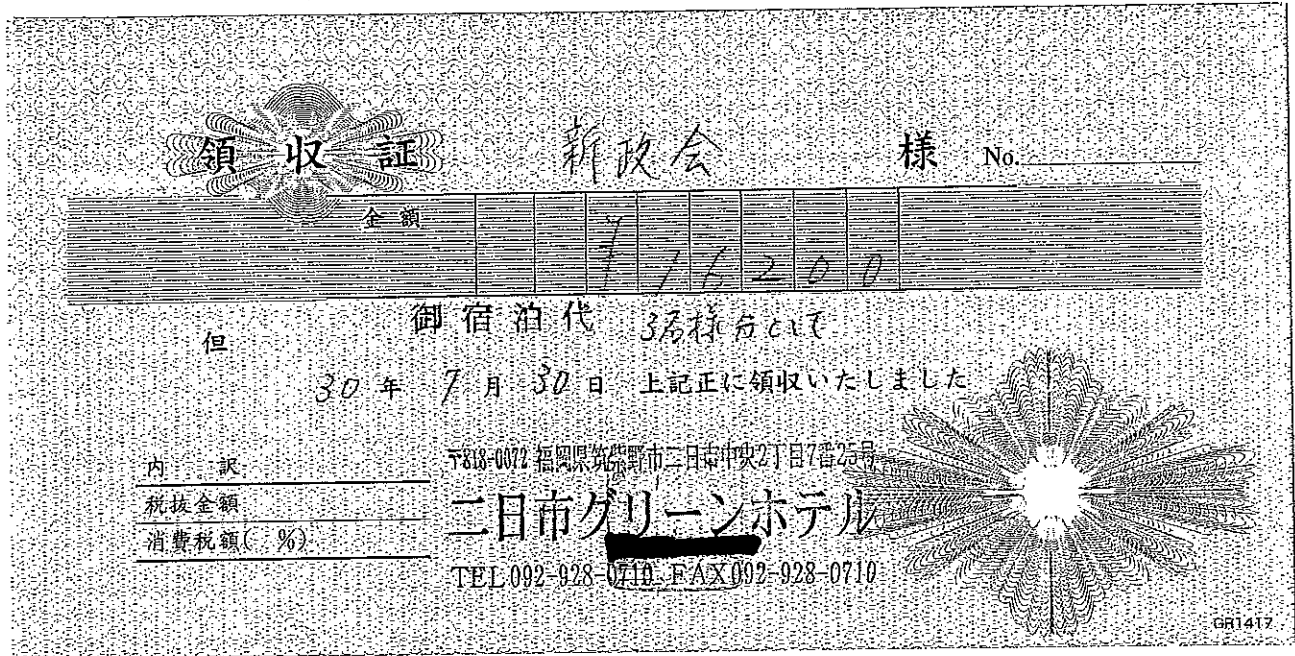 領収証 新政会 様 No.
金額 ¥16200
但 御宿泊代 3名様分として
30年 7月 30日 上記正に領収いたしました
内訳
税抜金額
消費税額( %)
〒818-0072 福岡県筑紫野市二日市中央2丁目7番25号
二日市グリーンホテル
TEL 092-928-0710 FAX 092-928-0710
GR1417